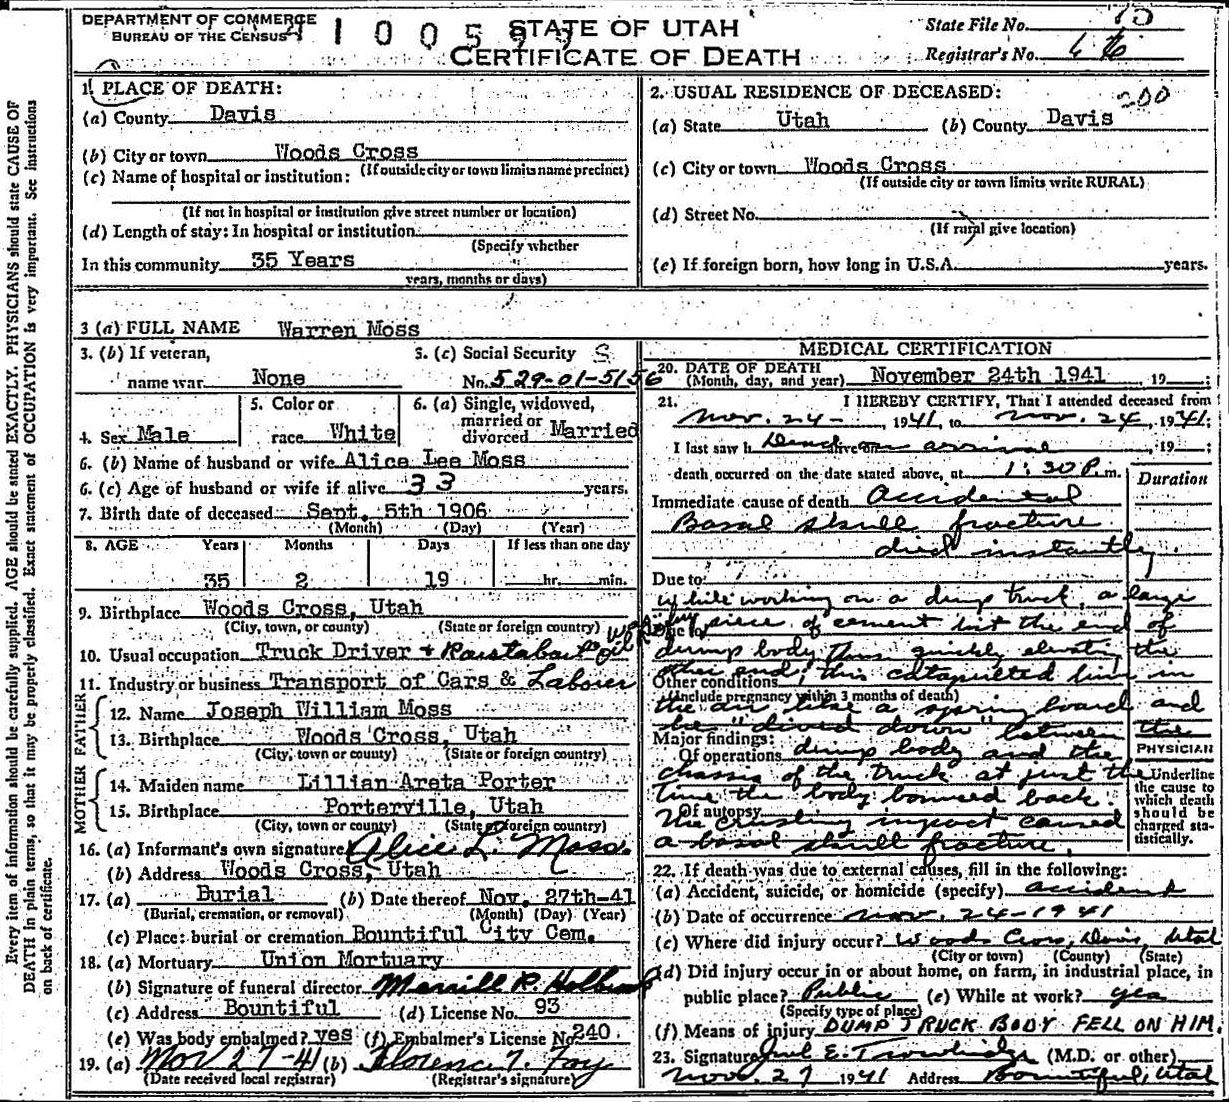 DEPARTMENT OF COMMERCE
BUREAU OF THE CENSUS
STATE OF UTAH
CERTIFICATE OF DEATH
State File No. 
Registrar's No. 
Every item of information should be carefully supplied. AGE should be stated EXACTLY. PHYSICIANS should state CAUSE OF
DEATH in plain terms, so that it may be properly classified. Exact statement of OCCUPATION is very important. See instructions
on back of certificate.
1. PLACE OF DEATH:
(a) County Davis
(b) City or town Woods Cross
(If outside city or town limits name precinct)
(c) Name of hospital or institution:
(If not in hospital or institution give street number or location)
(d) Length of stay: In hospital or institution
(Specify whether
In this community 35 Years
years, months or days)
2. USUAL RESIDENCE OF DECEASED:
200
(a) State Utah (b) County Davis
(c) City or town Woods Cross
(If outside city or town limits write RURAL)
(d) Street No.
(If rural give location)
(e) If foreign born, how long in U.S.A. years.
3 (a) FULL NAME Warren Moss
3. (b) If veteran, name war None
3. (c) Social Security No. 529-01-5156
4. Sex Male
5. Color or race White
6. (a) Single, widowed, married or divorced Married
6. (b) Name of husband or wife Alice Lee Moss
6. (c) Age of husband or wife if alive 33 years.
7. Birth date of deceased Sept. 5th 1906
(Month) (Day) (Year)
8. AGE Years Months Days If less than one day
35 2 19 hr. min.
9. Birthplace Woods Cross, Utah
(City, town, or county) (State or foreign country)
10. Usual occupation Truck Driver +
11. Industry or business Transport of Cars & Laborer
FATHER
12. Name Joseph William Moss
13. Birthplace Woods Cross, Utah
(City, town or county) (State or foreign country)
MOTHER
14. Maiden name Lillian Areta Porter
15. Birthplace Porterville, Utah
(City, town or county) (State or foreign country)
16. (a) Informant's own signature Alice L. Moss.
(b) Address Woods Cross, Utah
17. (a) Burial (b) Date thereof Nov. 27th-41
(Burial, cremation, or removal) (Month) (Day) (Year)
(c) Place: burial or cremation Bountiful City Cem.
18. (a) Mortuary Union Mortuary
(b) Signature of funeral director Merrill R. Holbrook
(c) Address Bountiful (d) License No. 93
(e) Was body embalmed? yes (f) Embalmer's License No 240
19. (a) Nov 27-41 (b) Florence T. Foy
(Date received local registrar) (Registrar's signature)
MEDICAL CERTIFICATION
20. DATE OF DEATH
(Month, day, and year) November 24th 1941, 19 ;
21. I HEREBY CERTIFY, That I attended deceased from
Nov. 24- , 1941, to Nov. 24, 1941;
I last saw h Dead alive on arrival , 19 ;
death occurred on the date stated above, at 1:30 P. m.
Duration
Immediate cause of death Accidental
Basal skull fracture
died instantly
Due to
while working on a dump truck, a large
Due to
piece of cement hit the end of
dump body thus quickly elevating the
other end, this catapulted him in
Other conditions
(Include pregnancy within 3 months of death)
the air like a spring board and
he "dived down" between the
Major findings:
Of operations
dump body and the
chassis of the truck at just the
time the body bounced back.
Of autopsy
The crushing impact caused
a basal skull fracture.
PHYSICIAN
Underline
the cause to
which death
should be
charged sta-
tistically.
22. If death was due to external causes, fill in the following:
(a) Accident, suicide, or homicide (specify) accident
(b) Date of occurrence Nov. 24-1941
(c) Where did injury occur? Woods Cross, Davis, Utah
(City or town) (County) (State)
(d) Did injury occur in or about home, on farm, in industrial place, in
public place? Public (e) While at work? yes
(Specify type of place)
(f) Means of injury DUMP TRUCK BODY FELL ON HIM.
23. Signature E. Trowbridge (M.D. or other)
Nov. 27 1941 Address Bountiful, Utah